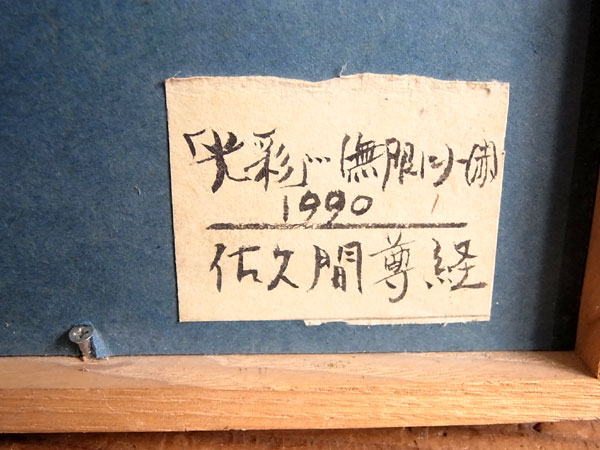 「光彩」…(無限リー用)
1990
佐久間尊経